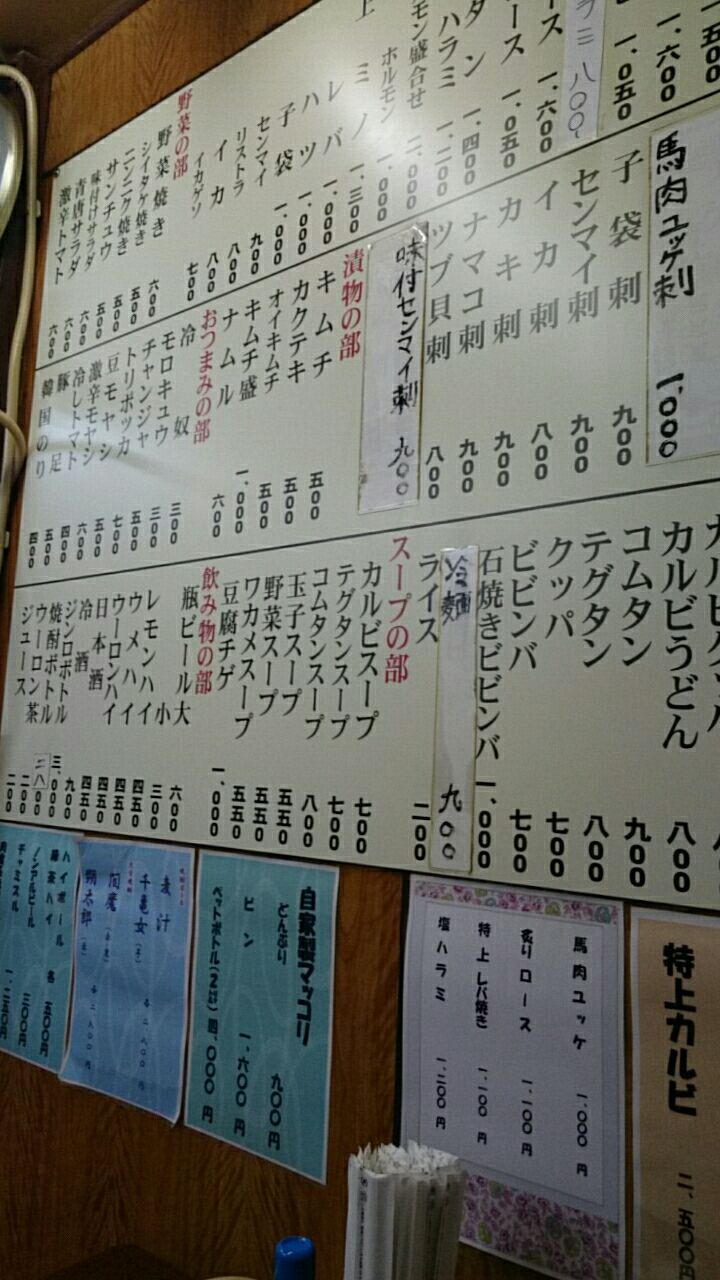 一、五〇〇
一、六〇〇
一、〇五〇
ラミ 八〇〇
ース 一、六〇〇
ース 一、〇五〇
タン 一、四〇〇
ハラミ 一、二〇〇
モン盛合せ 二、〇〇〇
ホルモン 一、〇〇〇
上ミノ 一、三〇〇
レバ 一、〇〇〇
ハツ 一、〇〇〇
子袋 一、〇〇〇
センマイ 九〇〇
リストラ 八〇〇
イカ 八〇〇
イカゲソ 七〇〇
野菜の部
野菜焼き 六〇〇
シイタケ焼き 五〇〇
ニンニク焼き 五〇〇
サンチュウ 五〇〇
味付けサラダ 六〇〇
青唐サラダ 六〇〇
激辛トマト 六〇〇
馬肉ユッケ刺 一、〇〇〇
子袋刺 九〇〇
センマイ刺 九〇〇
イカ刺 八〇〇
カキ刺 九〇〇
ナマコ刺 九〇〇
ツブ貝刺 八〇〇
味付センマイ刺 九〇〇
漬物の部
キムチ 五〇〇
カクテキ 五〇〇
オイキムチ 五〇〇
キムチ盛 一、〇〇〇
ナムル 六〇〇
おつまみの部
冷奴 三〇〇
モロキュウ 三〇〇
チャンジャ 五〇〇
トリポッカ 七〇〇
豆モヤシ 五〇〇
激辛モヤシ 六〇〇
冷しトマト 四〇〇
豚足 五〇〇
韓国のり 四〇〇
カルビクッパ
カルビうどん 八〇〇
コムタン 九〇〇
テグタン 八〇〇
クッパ 七〇〇
ビビンバ 七〇〇
石焼きビビンバ 一、〇〇〇
冷麺 九〇〇
ライス 二〇〇
スープの部
カルビスープ 七〇〇
テグタンスープ 七〇〇
コムタンスープ 八〇〇
玉子スープ 五五〇
野菜スープ 五五〇
ワカメスープ 五五〇
豆腐チゲ 一、〇〇〇
飲み物の部
瓶ビール大 六〇〇
小 三〇〇
レモンハイ 四五〇
ウメハイ 四五〇
ウーロンハイ 四五〇
日本酒 四五〇
冷酒 九〇〇
ジンロボトル 三、〇〇〇
焼酎ボトル 二八〇〇
ウーロン茶 二〇〇
ジュース 二〇〇
特上カルビ 二、五〇〇円
馬肉ユッケ 一、〇〇〇円
炙りロース 一、一〇〇円
特上レバ焼き 一、一〇〇円
塩ハラミ 一、二〇〇円
自家製マッコリ
どんぶり 九〇〇円
ビン 一、六〇〇円
ペットボトル(2ℓ) 四、〇〇〇円
麦汁
千亀女(芋)
閻魔
朔太郎
各二、八〇〇円
ハイボール
緑茶ハイ 各五〇〇円
ノンアルビール 三〇〇円
チャミスル 一、二五〇円